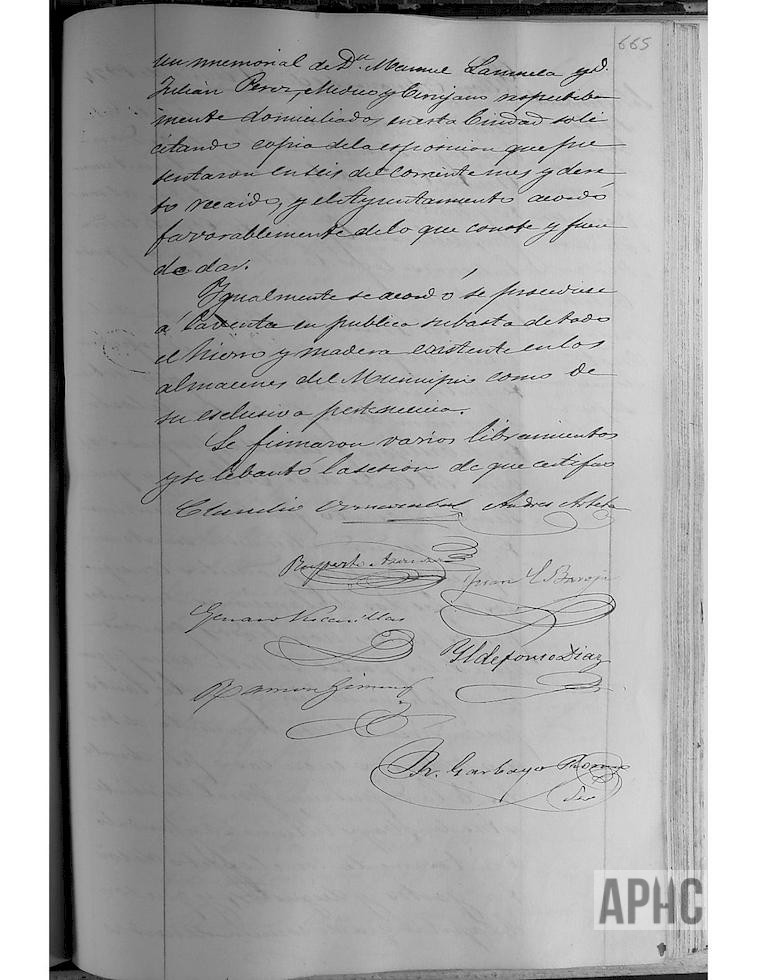 665
un memorial de Dn. Manuel Lamuela y D.
Julian Perez, Medico y Cirujano respectiba
mente domiciliados en esta Ciudad soli
citando copia de la esposicion que pre
sentaron en seis del corriente mes y decre
to recaido, y el Ayuntamiento acordó
favorablemente de lo que conste y fuere
de dar.
Ygualmente se acordó se procediese
á la venta en publica subasta de todo
el hierro y madera existente en los
almacenes del Municipio como de
su esclusiva pertenencia.
Se firmaron varios libramientos
y se lebantó la sesion de que certifico
Claudio Andres Arteta
Ruperto Juan
Genaro Vicenillas
Yldefonso Diaz
Ramon Gimenez
Garbayo
Srio
APHC